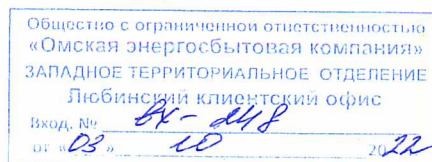 Общество с ограниченной ответственностью
«Омская энергосбытовая компания»
ЗАПАДНОЕ ТЕРРИТОРИАЛЬНОЕ ОТДЕЛЕНИЕ
Любинский клиентский офис
Вход. № вх-248
от «03» 10 2022